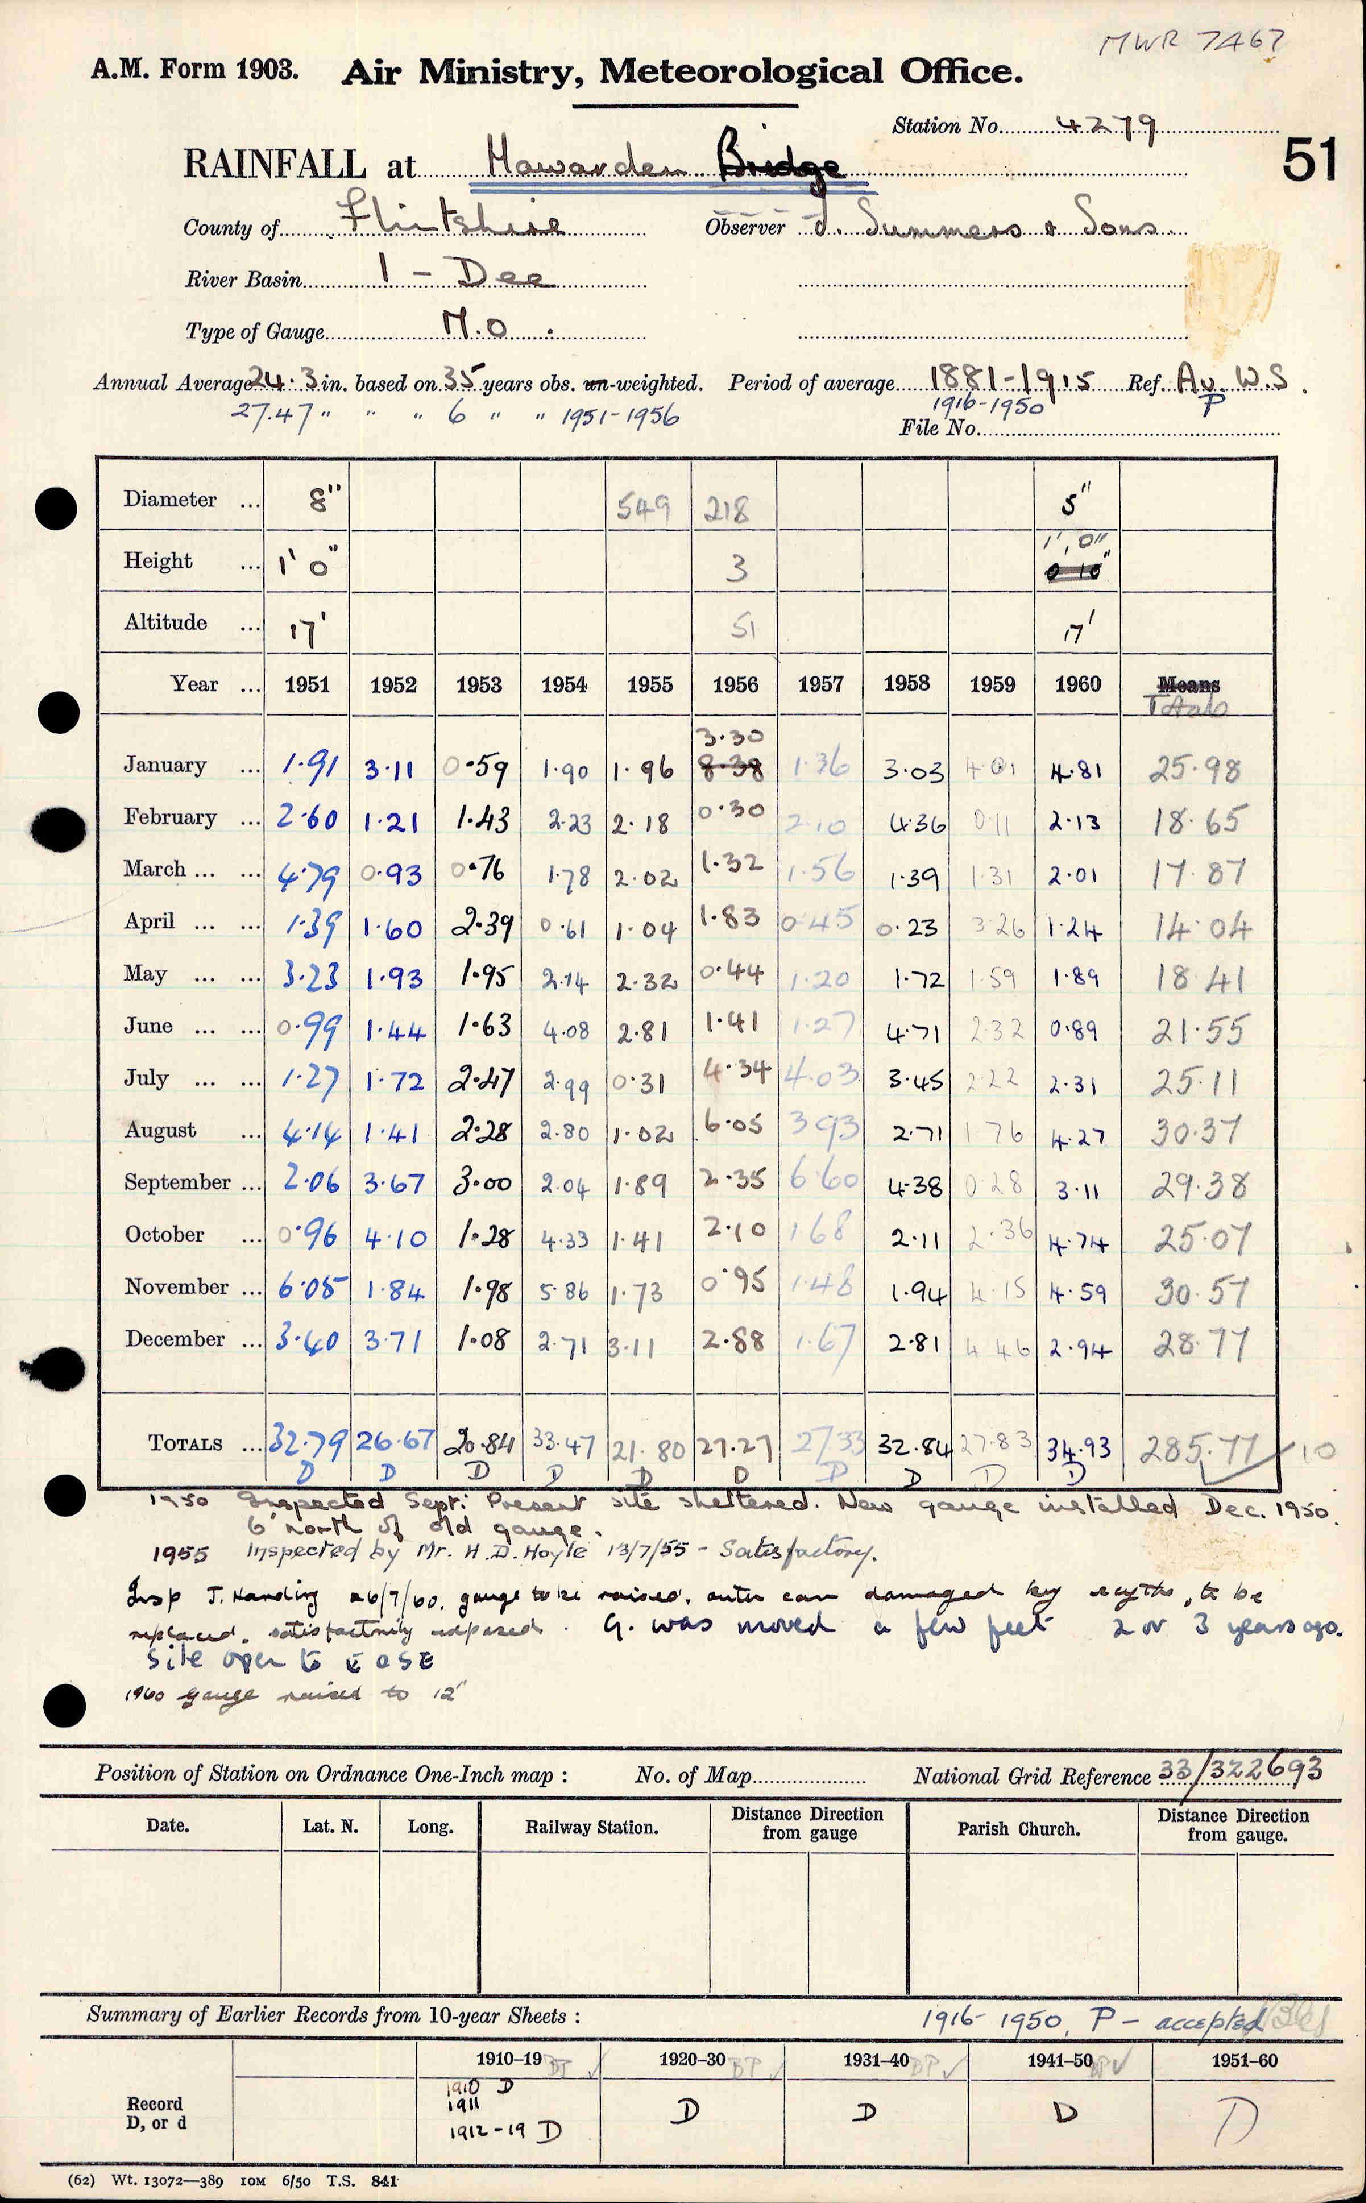 MWR 7467
A.M. Form 1903. Air Ministry, Meteorological Office.
Station No. 4279
51
RAINFALL at Hawarden Bridge
County of Flintshire Observer J. Summers & Sons
River Basin 1 - Dee
Type of Gauge M.O.
Annual Average 24.3 in. based on 35 years obs. un-weighted. Period of average 1881-1915 Ref. Av. W.S.
27.47 " " " 6 " " 1951-1956 1916-1950 P
File No.
Diameter ... 8" 549 218 5"
Height ... 1' 0" 3 1', 0" 0 10"
Altitude ... 17' 51 17'
Year ... 1951 1952 1953 1954 1955 1956 1957 1958 1959 1960 Means Totals
3.30
January ... 1.91 3.11 0.59 1.90 1.96 8.38 1.36 3.03 4.01 4.81 25.98
February ... 2.60 1.21 1.43 2.23 2.18 0.30 2.10 4.36 0.11 2.13 18.65
March ... ... 4.79 0.93 0.76 1.78 2.02 1.32 1.56 1.39 1.31 2.01 17.87
April ... ... 1.39 1.60 2.39 0.61 1.04 1.83 0.45 0.23 3.26 1.24 14.04
May ... ... 3.23 1.93 1.95 2.14 2.32 0.44 1.20 1.72 1.59 1.89 18.41
June ... ... 0.99 1.44 1.63 4.08 2.81 1.41 1.27 4.71 2.32 0.89 21.55
July ... ... 1.27 1.72 2.47 2.99 0.31 4.34 4.03 3.45 2.22 2.31 25.11
August ... 4.14 1.41 2.28 2.80 1.02 6.05 3.93 2.71 1.76 4.27 30.37
September ... 2.06 3.67 3.00 2.04 1.89 2.35 6.60 4.38 0.28 3.11 29.38
October ... 0.96 4.10 1.28 4.33 1.41 2.10 1.68 2.11 2.36 4.74 25.07
November ... 6.05 1.84 1.98 5.86 1.73 0.95 1.48 1.94 4.15 4.59 30.57
December ... 3.40 3.71 1.08 2.71 3.11 2.88 1.67 2.81 4.46 2.94 28.77
TOTALS ... 32.79 26.67 20.84 33.47 21.80 27.27 27.33 32.84 27.83 34.93 285.77 10
D D D D D D D D D D
1950 Inspected Sept: Present site sheltered. New gauge installed Dec. 1950.
6' north of old gauge.
1955 Inspected by Mr. H.D. Hoyle 13/7/55 - Satisfactory.
Insp J. Harding 26/7/60. gauge to be raised. outer can damaged by scythe, to be
replaced. satisfactorily exposed. G. was moved a few feet 2 or 3 years ago.
Site open to E & SE
1960 gauge raised to 12"
Position of Station on Ordnance One-Inch map : No. of Map National Grid Reference 33/322693
Date. Lat. N. Long. Railway Station. Distance Direction from gauge Parish Church. Distance Direction from gauge.
Summary of Earlier Records from 10-year Sheets : 1916-1950, P - accepted
1910-19 BP 1920-30 BP 1931-40 BP 1941-50 BP 1951-60
Record D, or d
1910 D
1911
1912-19 D D D D D
(62) Wt. 13072—389 10M 6/50 T.S. 841